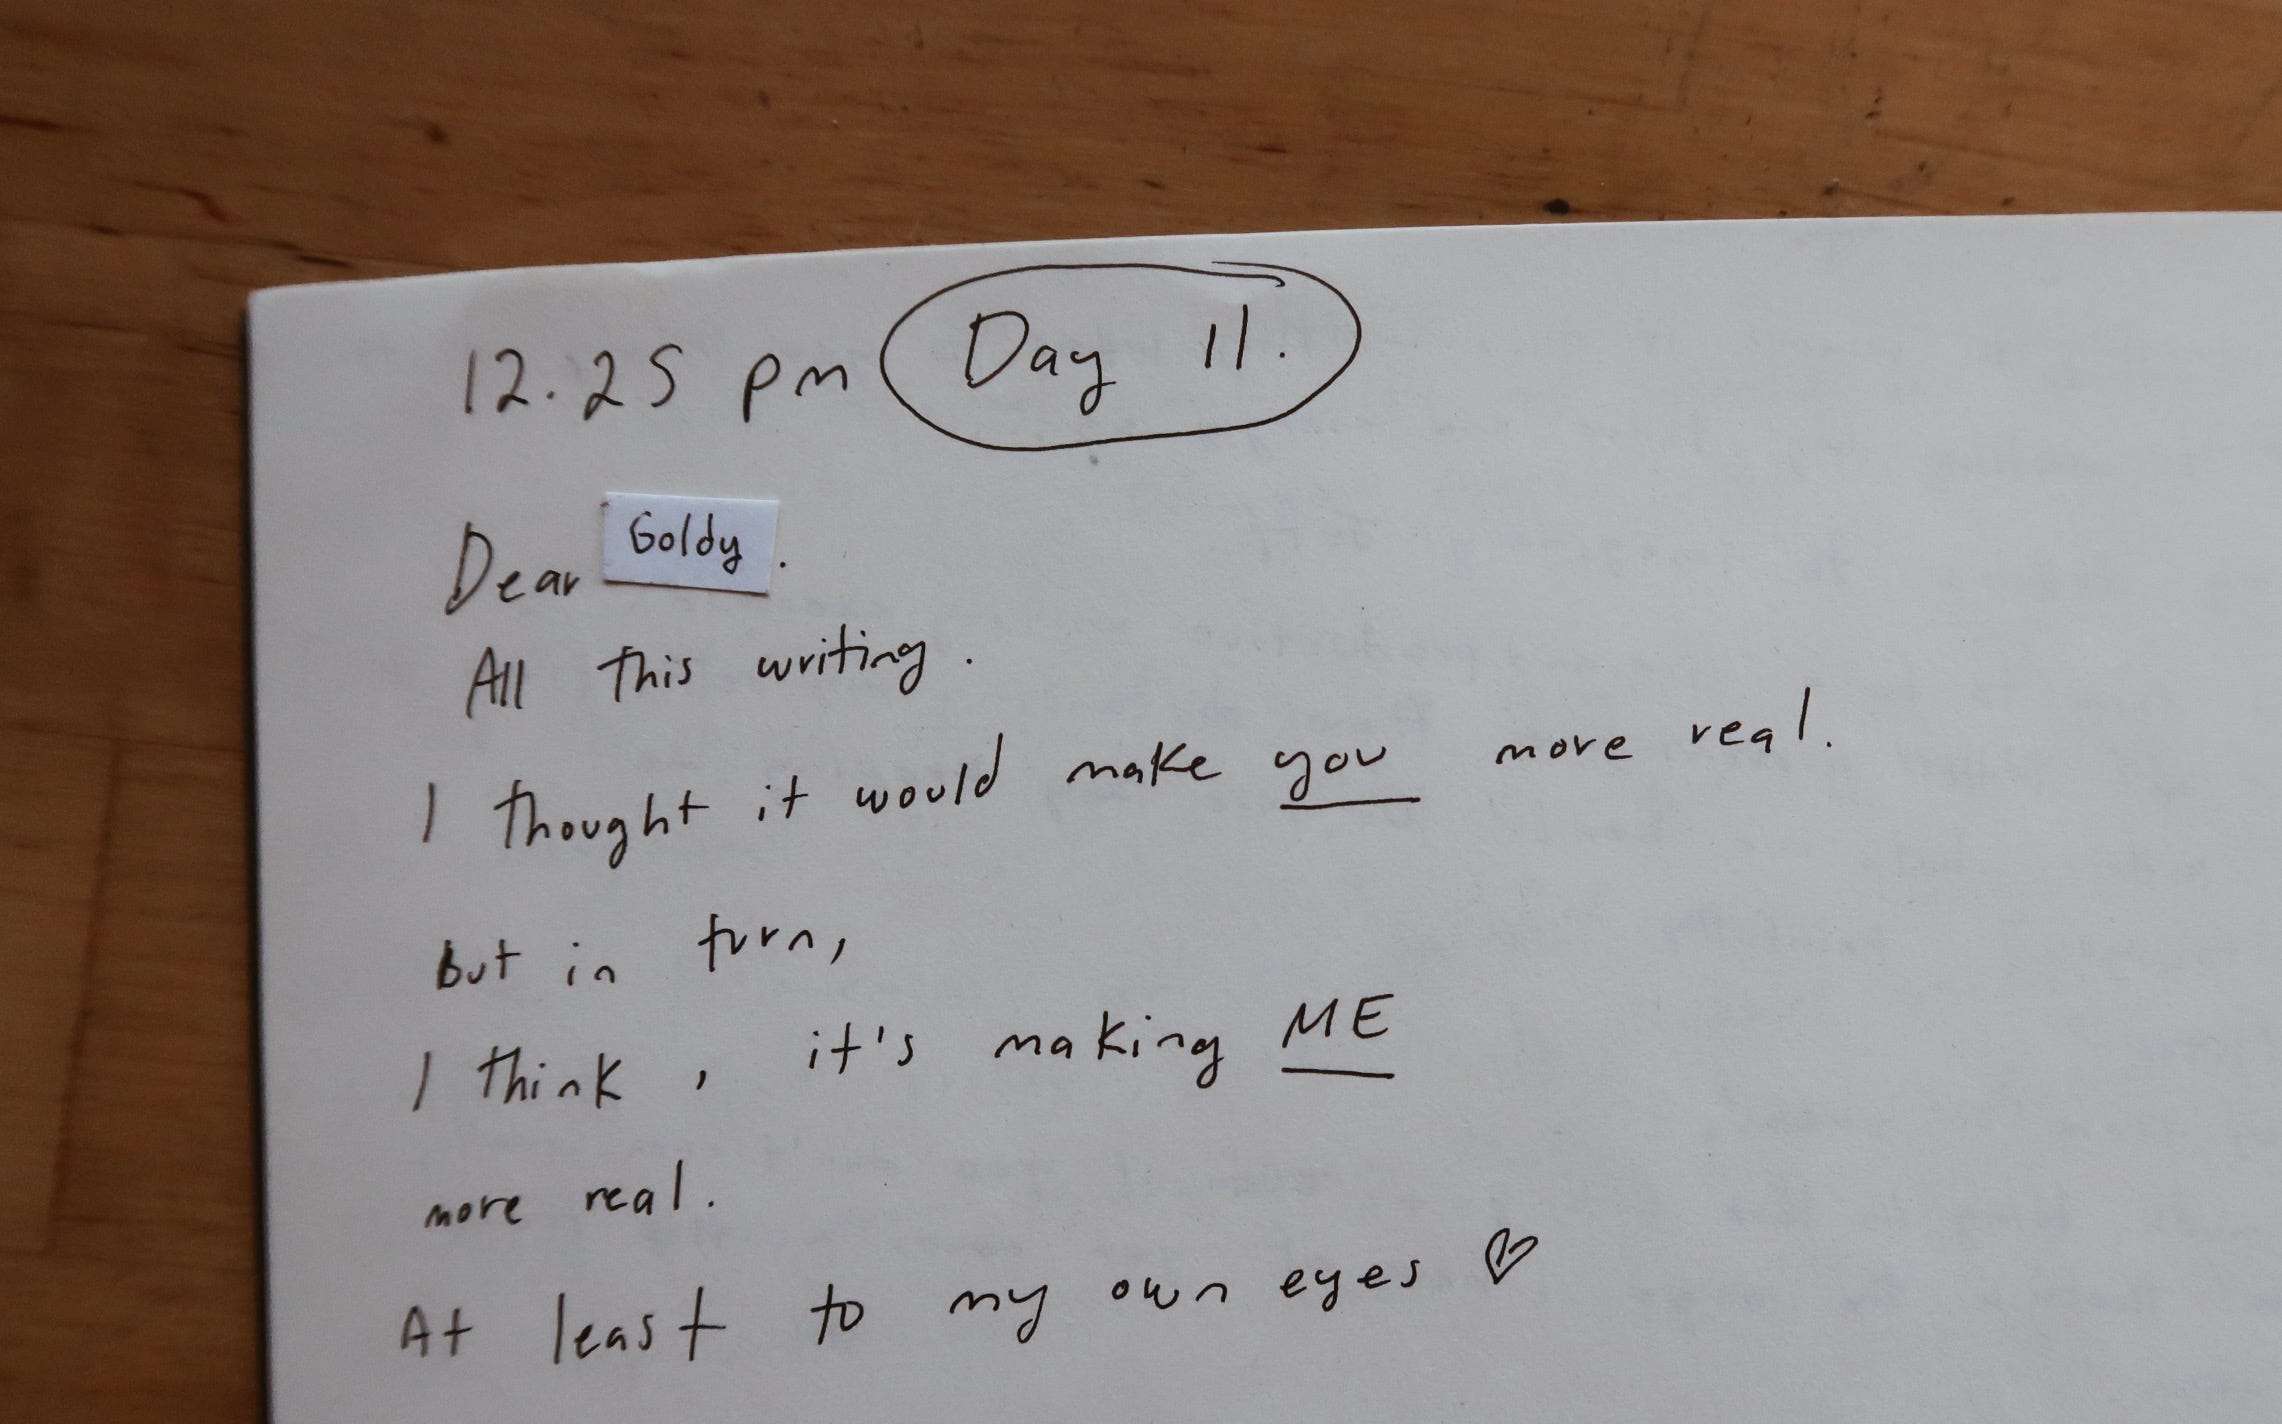 12.25 pm Day 11.
Dear Goldy.
All this writing.
I thought it would make you more real.
But in turn,
I think, it's making ME
more real.
At least to my own eyes ♡